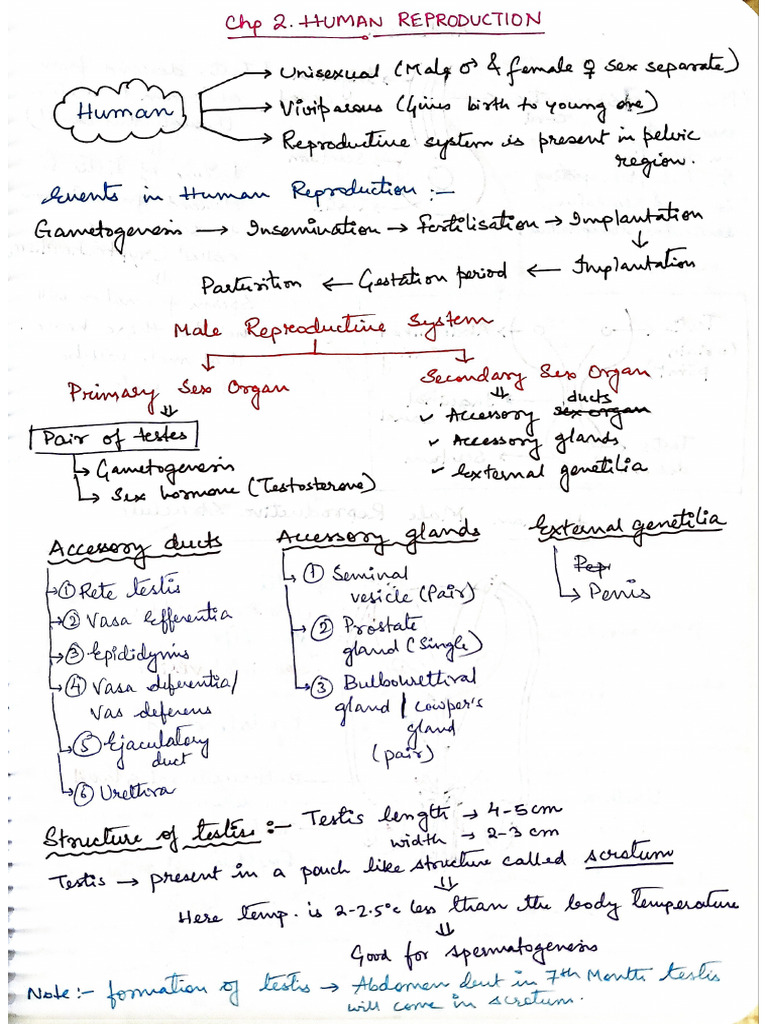 Chp 2. HUMAN REPRODUCTION
Human
→ Unisexual (Male ♂ & female ♀ sex separate)
→ Viviparous (Gives birth to young one)
→ Reproductive system is present in pelvic
region.
Events in Human Reproduction :-
Gametogenesis → Insemination → Fertilisation → Implantation
↓
Parturition ← Gestation period ← Implantation
Male Reproductive System
Primary Sex Organ
⇓
Pair of testes
↳ Gametogenesis
↳ Sex hormone (Testosterone)
Secondary Sex Organ
⇓
ducts
✓ Accessory sex organ
✓ Accessory glands
✓ External genetilia
Accessory ducts
→ ① Rete testis
→ ② Vasa Efferentia
→ ③ Epididymis
→ ④ Vasa deferentia/
Vas deferens
→ ⑤ Ejaculatory
duct
→ ⑥ Urethra
Accessory glands
→ ① Seminal
vesicle (Pair)
→ ② Prostate
gland (Single)
→ ③ Bulbourethral
gland / Cowper's
gland
(pair)
External genetilia
Pep
↳ Penis
Structure of testis :- Testis length → 4-5 cm
width → 2-3 cm
Testis → present in a pouch like structure called scrotum
⇓
Here temp. is 2-2.5°c less than the body temperature
⇓
Good for spermatogenesis
Note :- formation of testis → Abdomen but in 7th Month testis
will come in scrotum.